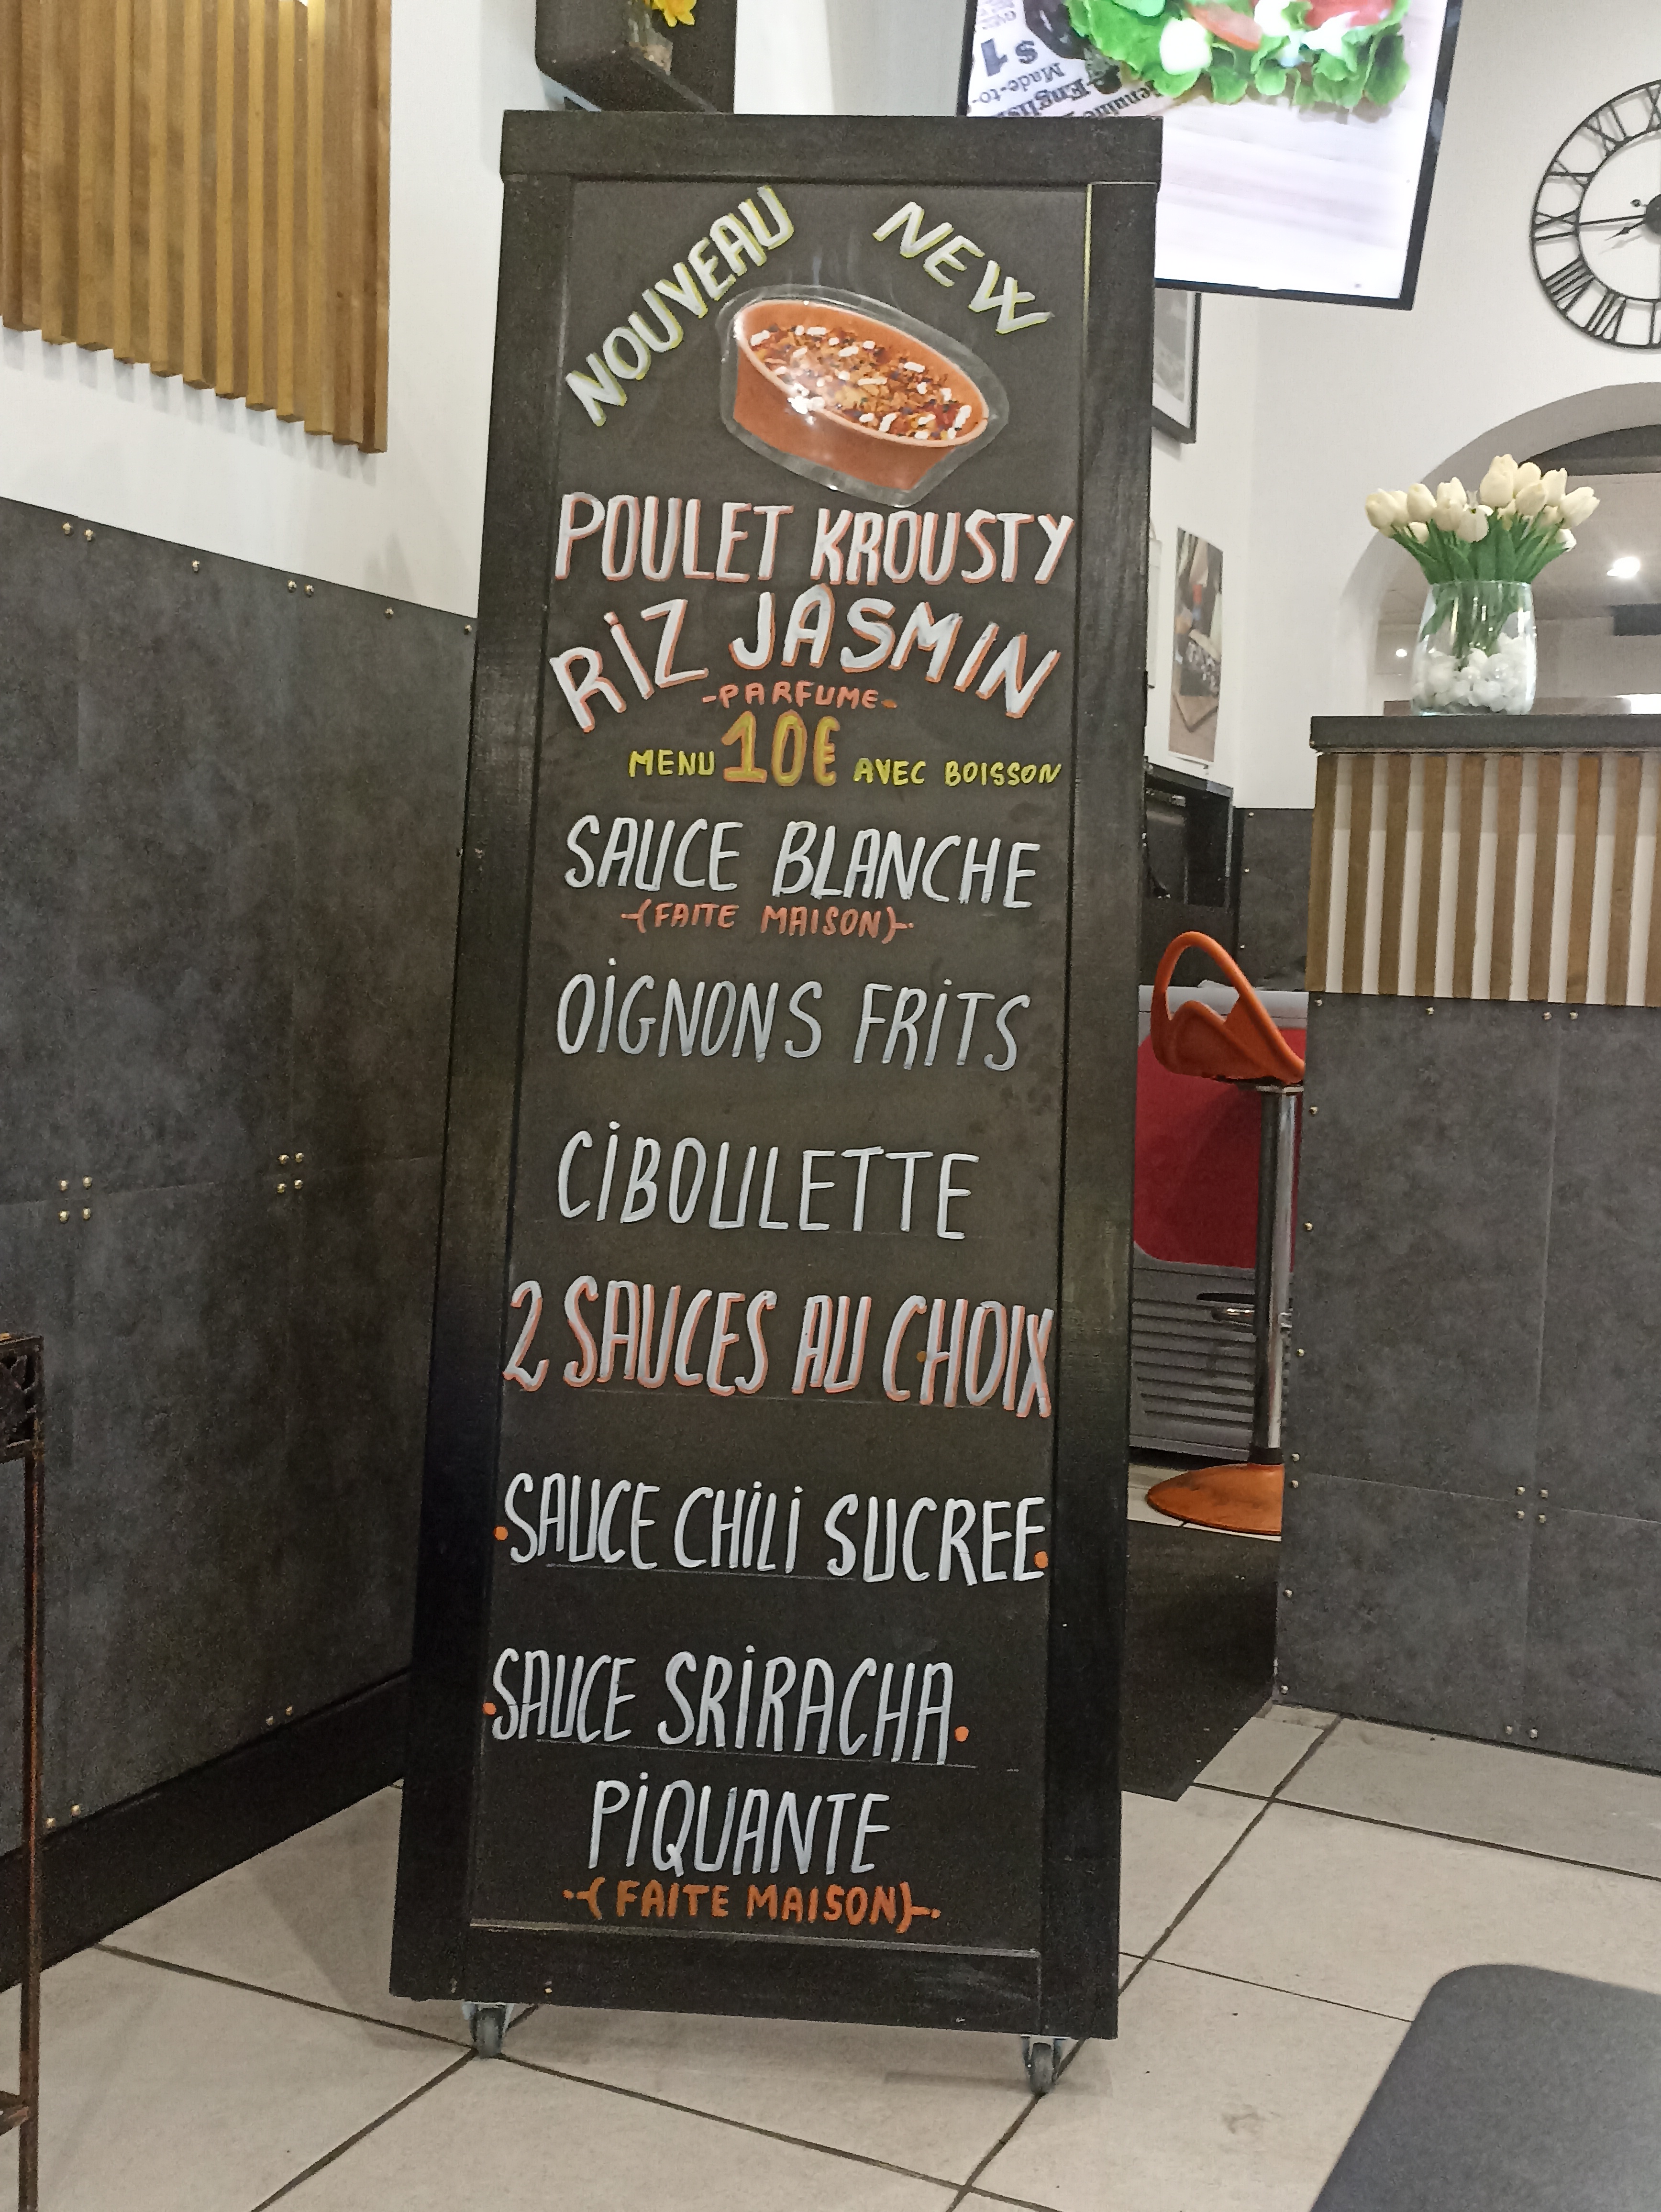 NOUVEAU NEW
POULET KROUSTY
RIZ JASMIN
-PARFUME-
MENU 10€ AVEC BOISSON
SAUCE BLANCHE
-(FAITE MAISON)-
OIGNONS FRITS
CIBOULETTE
2 SAUCES AU CHOIX
•SAUCE CHILI SUCREE•
•SAUCE SRIRACHA•
PIQUANTE
-(FAITE MAISON)-
$1
Made-to-
XI
X
IX
VIII
VII